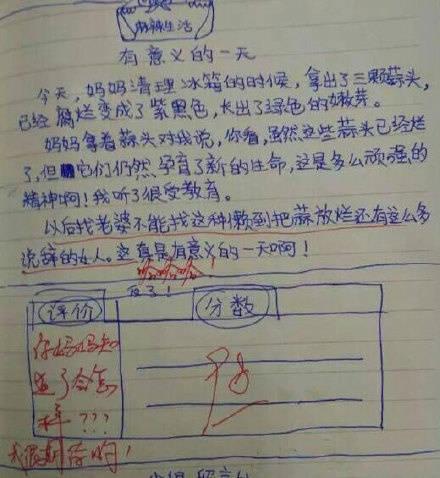 麻辣生活
有意义的一天
今天，妈妈清理冰箱的时候，拿出了三颗蒜头，
已经腐烂变成了紫黑色，长出了绿色的嫩芽。
妈妈拿着蒜头对我说，你看，虽然这些蒜头已经烂
了，但它们仍然孕育了新的生命，这是多么顽强的
精神啊！我听了很受教育。
以后找老婆不能找这种懒到把蒜放烂还有这么多
说辞的女人。这真是有意义的一天啊！
哈哈哈
评价
分数
你妈妈知
道了会怎
样？？？
我很期待哟！